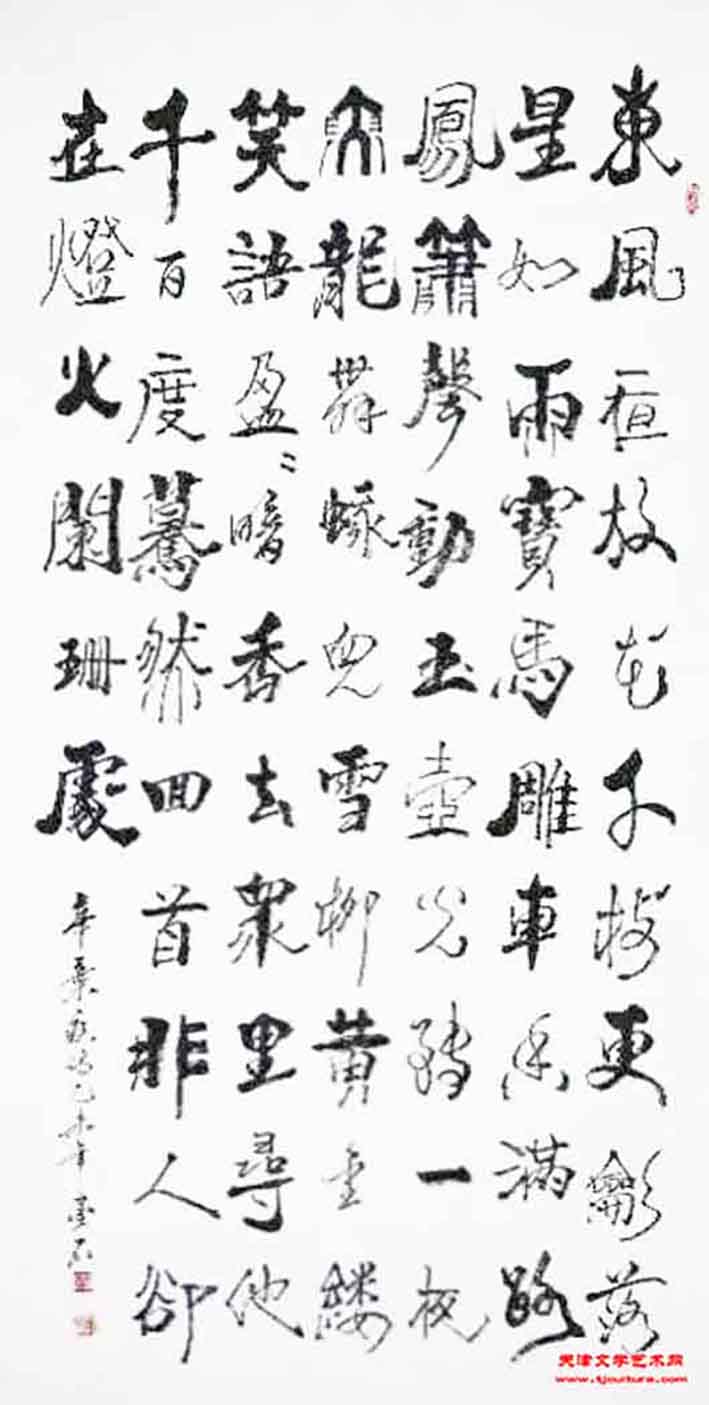 東風亱放花千樹更龡落
星如雨寶馬雕車香滿路
鳳簫聲動玉壺光轉一夜
魚龍舞蛾兒雪柳黃金縷
笑語盈〻暗香去衆里尋他
千百度驀然回首那人卻
在燈火闌珊處
辛棄疾詞乙未年
天津文学艺术网
www.tjculture.com